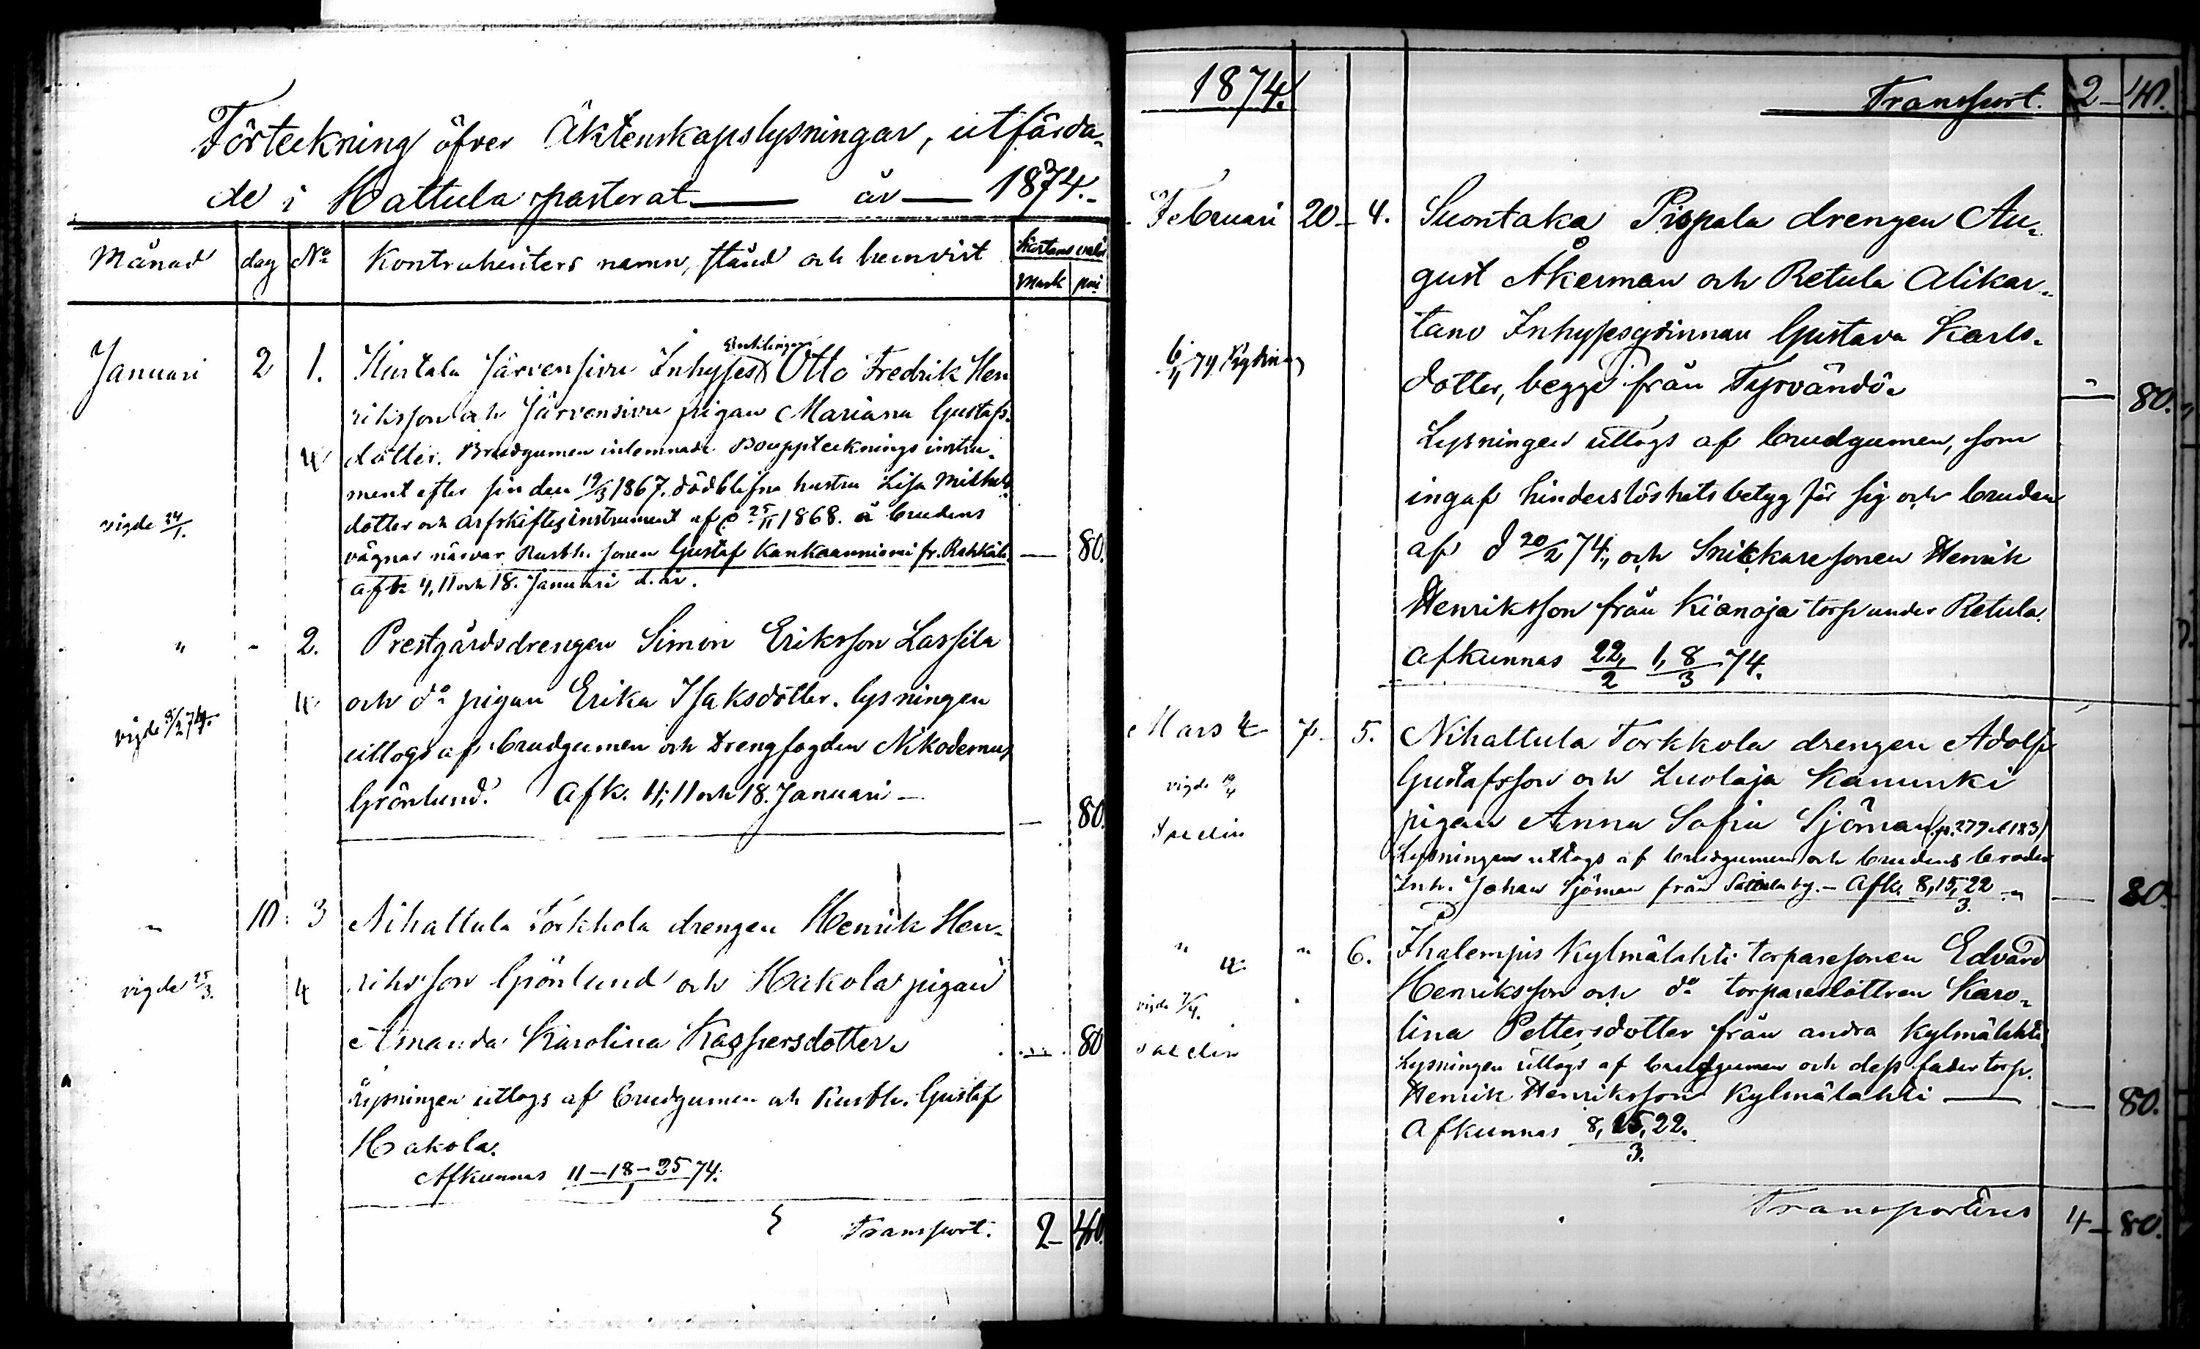 Förteckning öfver Äktenskapslysningar, utfärda-
de i Hattula pastorat — år — 1874.
Månad dag No Kontrahenters namn, stånd och hemvist Kartans valör
Mark pni
Januari 2 1. Hurtala Järvensivu Inhyses Enklingen Otto Fredrik Hen
riksson och Järvensivu pigan Mariana Gustafs-
4 dotter. Brudgumen inlemnade Bouppteckningsinstru-
ment efter sin den 19/3 1867. dödblefna hustru Lisa Mickels
vigde 24/1. dotter och arfskiftesinstrument af d 25/11 1868. å brudens
vägnar närvar Rusth. sonen Gustaf Kankaanniemi fr. — 80.
afk. 4, 11 och 18. Januari d. år.
" - 2. Prestgårdsdrengen Simon Eriksson Lassila
4 och do pigan Erika Isaksdotter. lysningen
vigde 8/2 74. uttogs af brudgumen och Drengfogden Nikodemus
Grönlund. Afk. 4, 11 och 18. Januari — — 80.
" 10. 3 Nihattula Torkkola drengen Henrik Hen-
vigde 25/3. 4 riksson Grönlund och Hakola pigan
Amanda Karolina Kaspersdotter. — 80
Lysningen uttogs af brudgumen och Rusth. Gustaf
Hakola.
Afkunnas 11–18–25/1 74.
Transport. 2– 40.
1874. Transport. 2– 40.
Februari 20– 4. Suontaka Pispala drengen Au-
gust Åkerman och Retula Alikar-
tano Inhysesqvinnan Gustava Karls-
dotter, begge från Tyrvändö. — 80.
Lysningen uttogs af brudgumen, som
ingaf hinderslöshetsbetyg för sig och bruden
af d 20/2 74, och Snickaresonen Henrik
Henriksson från Kianoja torp under Retula.
Afkunnas 22/2 1, 8/3 74.
Mars 4 7– 5. Nihattula Torkkola drengen Adolf
Gustafsson och Luolaja Kanunki
vigde pigan Anna Sofia Sjöman (p. 279 & 183)
Lysningen uttogs af brudgumen och brudens broder
Inh. Johan Sjöman från by.– Afk. 8, 15, 22/3. — 80.
" 4 " 6. Ihalempis Kylmälahti torparesonen Edvard
vigde Henriksson och do torparedottren Karo-
lina Pettersdotter från andra Kylmälahti
Lysningen uttogs af brudgumen och dess fader torp.
Henrik Henriksson Kylmälahti — — 80.
Afkunnas 8, 15, 22./3.
Transporteras 4– 80.